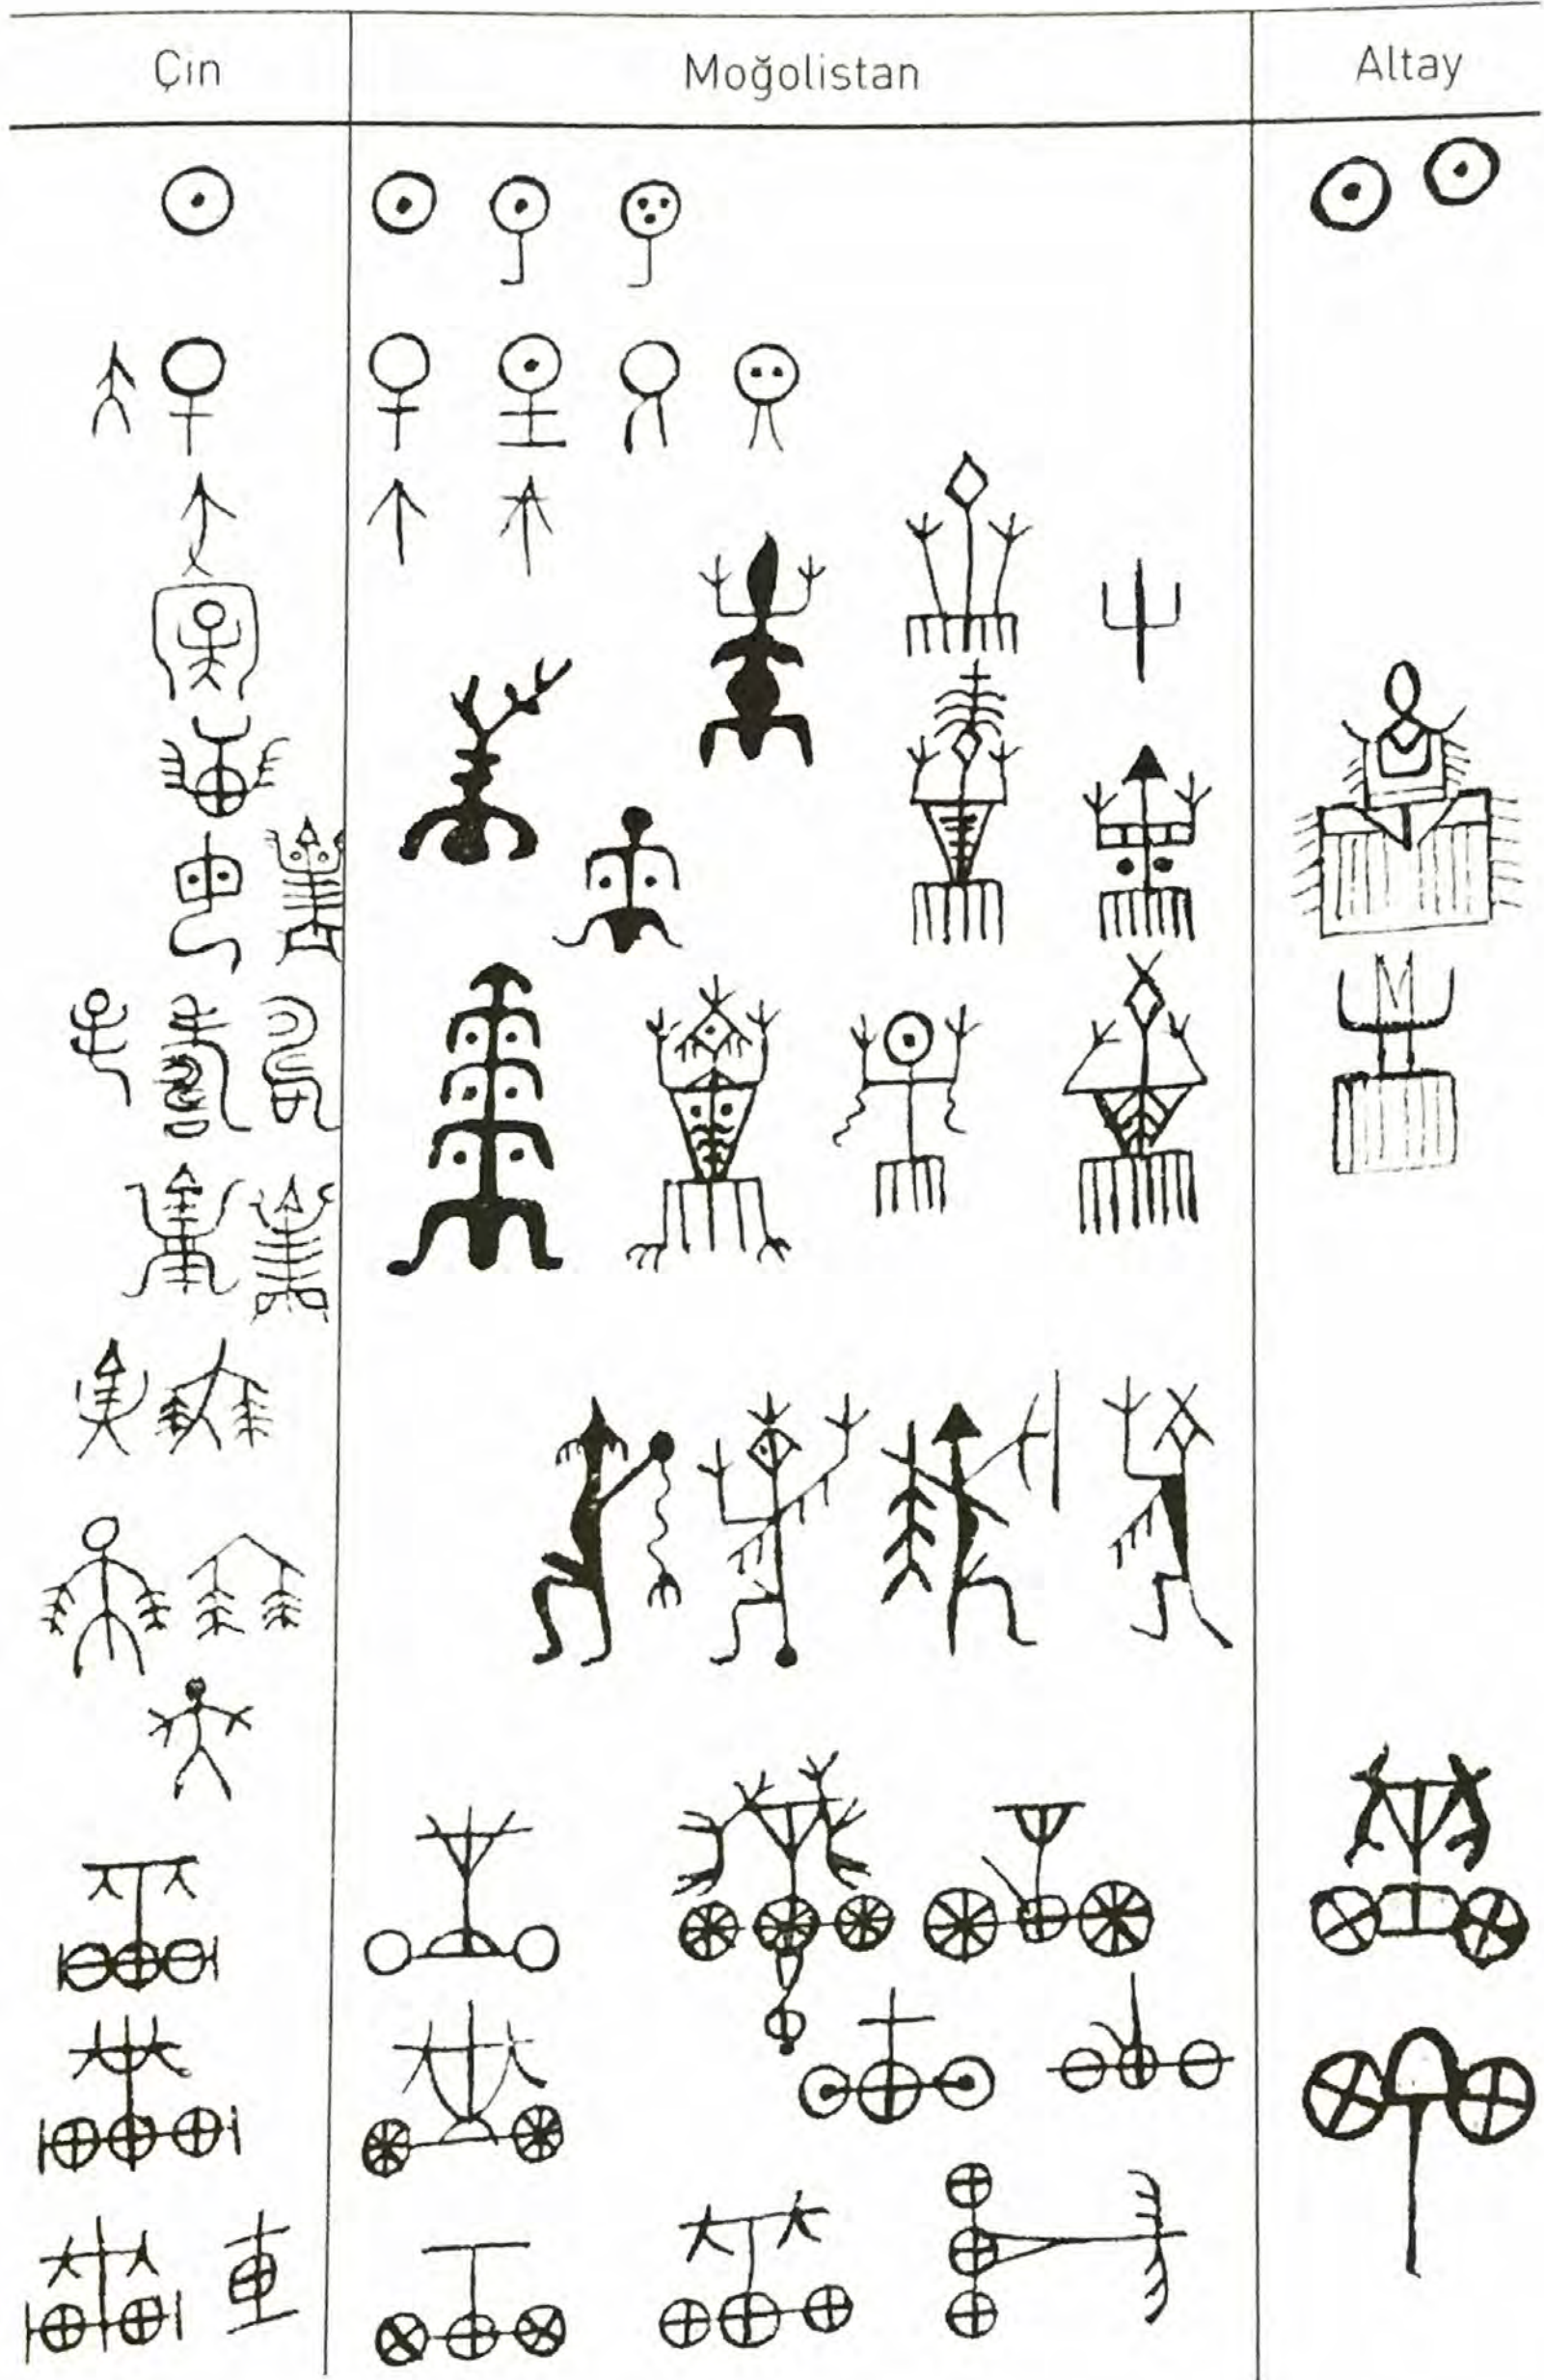 Çin Moğolistan Altay